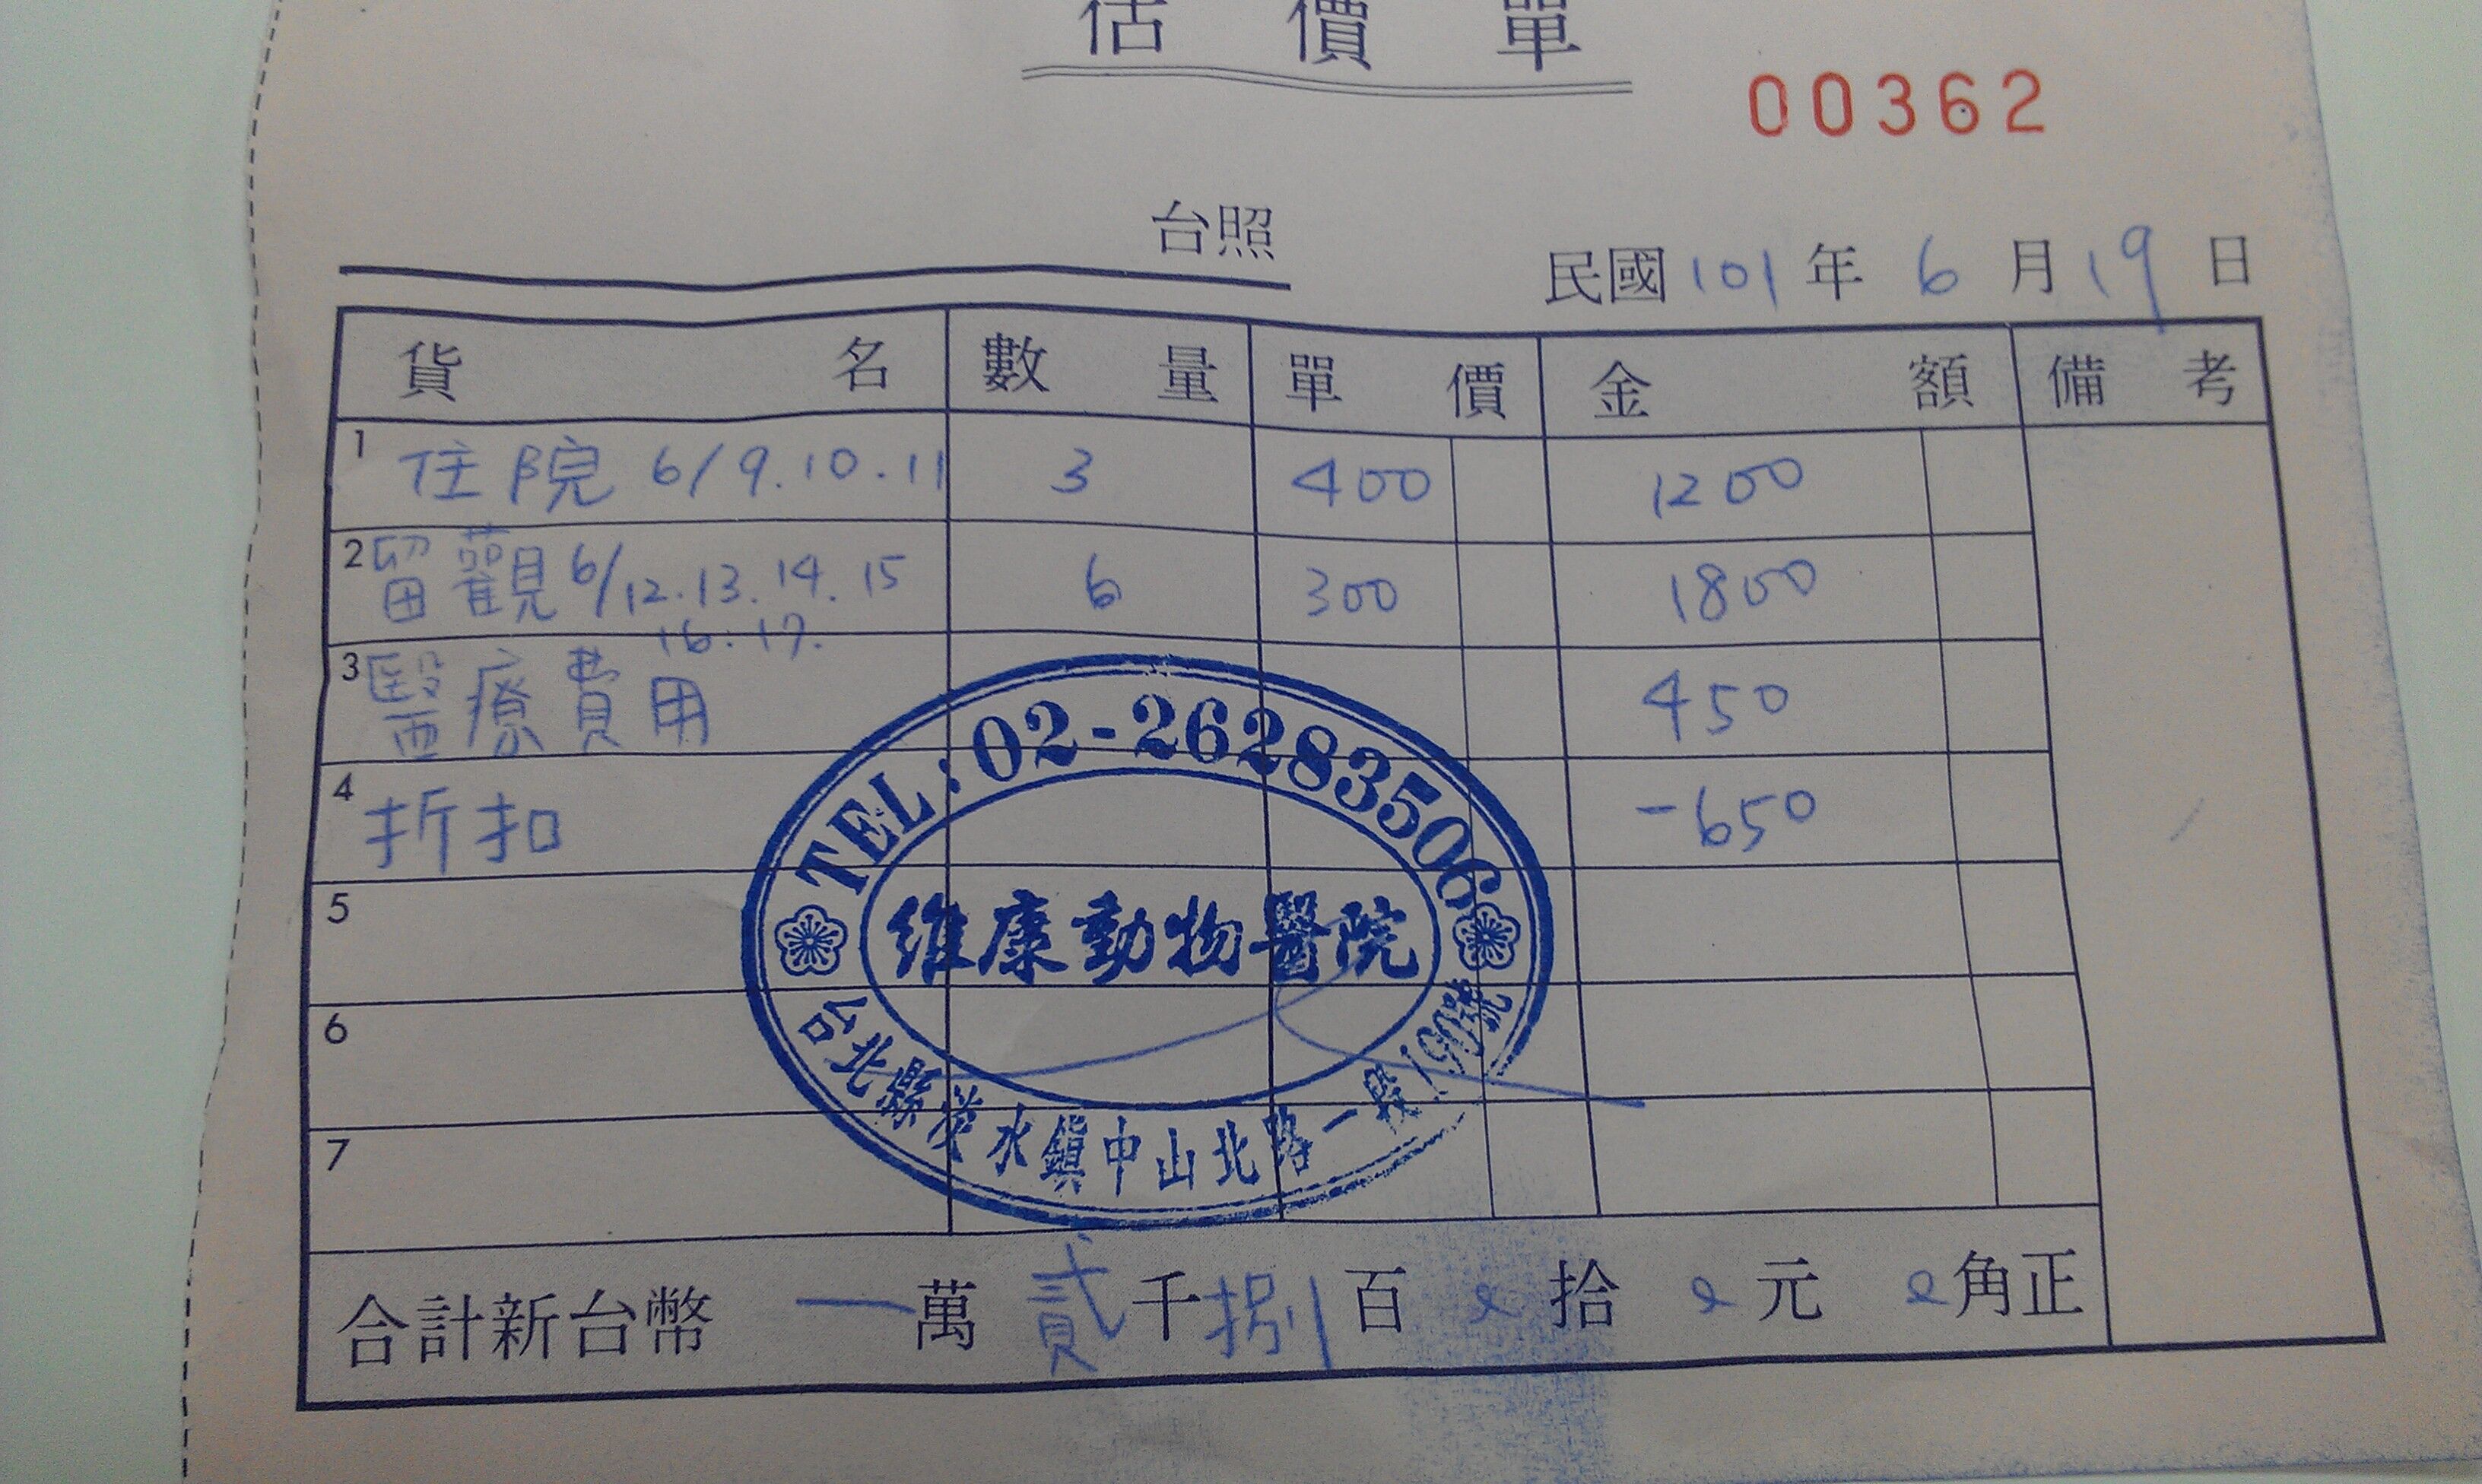 估價單
00362
台照
民國101年6月19日
貨名 數量 單價 金額 備考
1 住院 6/9.10.11 3 400 1200
2 留觀 6/12.13.14.15 6 300 1800
16.17.
3 醫療費用 450
4 折扣 -650
5
6
7
TEL:02-26283506
維康動物醫院
台北縣淡水鎮中山北路一段190號
合計新台幣 一萬貳千捌百0拾0元0角正